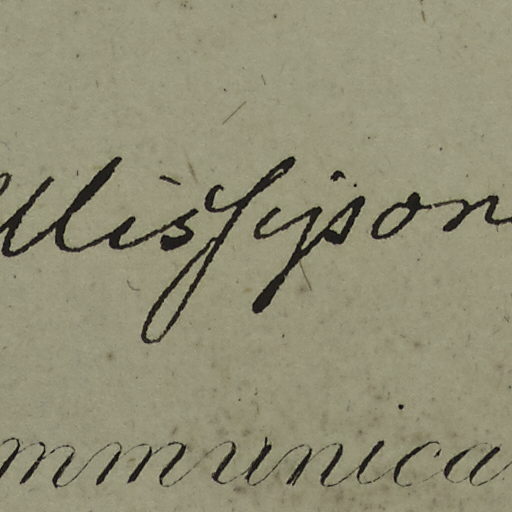 llis Jipson
mmunica